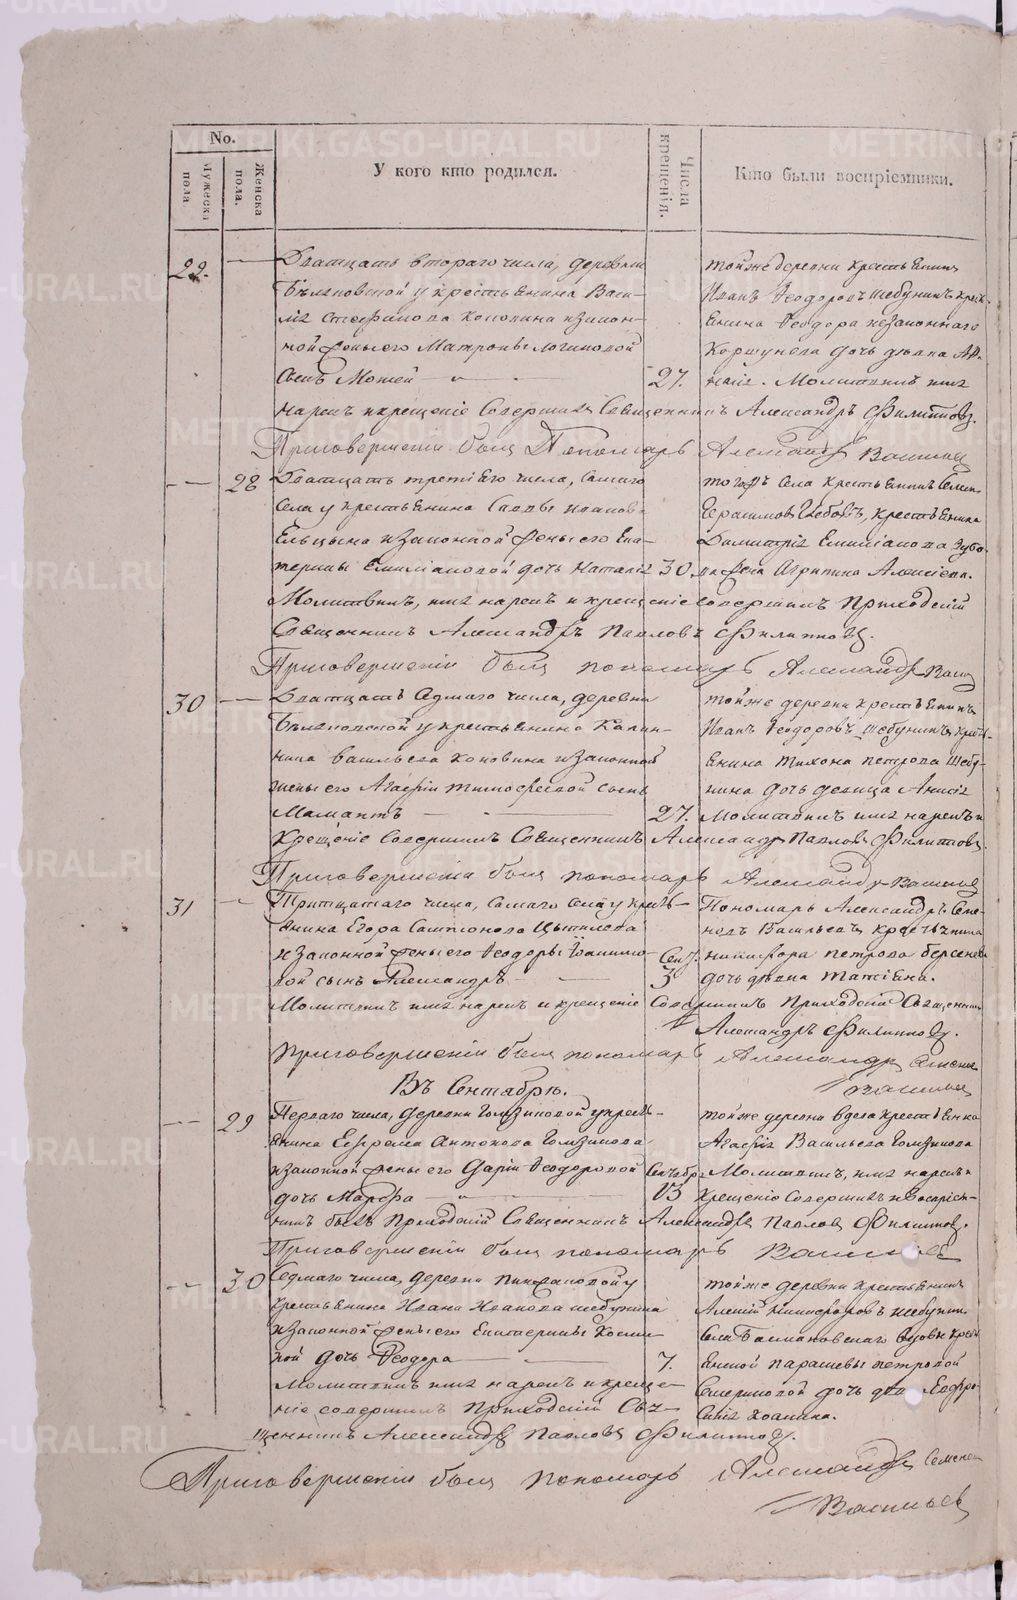 No.
Мужеска пола.
Женска пола.
У кого кто родился.
Числа крещенія.
Кто были воспріемники.
22. Дватцать втораго числа, деревни
у крестьянина Васи-
лія Стефанова Коновина и закон-
ной жены его Матроны Логиновой
сынъ Моѵсей 27.
тойже деревни крестьянинъ
Иванъ Ѳеодоровъ Шебунинъ, крестъ-
янина Ѳеодора
дочь девка
Молитвилъ имя
нарекъ и крещеніе совершилъ Священникъ Александръ Филипповъ.
При совершеніи былъ Пономарь Александръ Васильевъ
28 Дватцать третіего числа, самаго
села у крестьянина Саввы Иванова
Ельцына и законной жены его Ека-
терины Емиліановой дочь Наталія 30.
тогожъ села крестьянинъ Семенъ
Герасимовъ Глебовъ, крестьянина
Димитрія Емиліанова Зубо-
ва жена Агрипина Алексіева.
Молитвилъ, имя нарекъ и крещеніе совершилъ Приходскій
Священникъ Александръ Павловъ Филипповъ.
При совершеніи былъ пономарь Александръ Васил
30 Дватцать седмаго числа, деревни
у крестьянина Калин-
ника Васильева Коновина и законной
жены его Агафіи Тимофеевой сынъ
Мамантъ 27.
тойже деревни крестьянинъ
Иванъ Ѳеодоровъ Шебунинъ, кресть-
янина Тихона Петрова Шебу-
нина дочь девица Анисія
Молитвилъ имя нарекъ и
крещеніе совершилъ Священникъ Александръ Павловъ Филипповъ.
При совершеніи былъ пономарь Александръ Васильевъ
31 Тритцатаго числа, самаго села у кресть-
янина Егора Сампсонова Цыпилева
и законной жены его Ѳеодоры Іоанно-
вой сынъ Александръ Сент. 3
Пономарь Александръ Семе-
новъ Васильевъ, крестьянина
Никифора Петрова Берсенева
дочь девка Татіана.
Молитвилъ имя нарекъ и крещеніе совершилъ приходскій Священникъ
Александръ Филипповъ.
При совершеніи былъ пономарь Александръ Семенов
Васильев
Въ Сентябрѣ.
29 Перваго числа, деревни Гомзиковой у кресть-
янина Ефрема Антонова Гомзикова
и законной жены его Даріи Ѳеодоровой
дочь Марѳа Сентября 13
тойже деревни вдова крестьянка
Агафія Васильева Гомзикова
Молитвилъ, имя нарекъ и
крещеніе совершилъ и воспріем-
никъ былъ приходскій Священникъ Александръ Павловъ Филипповъ.
При совершеніи былъ пономарь Васильев
30 Седмаго числа, деревни у
крестьянина Ивана Иванова Шебунина
и законной жены его Екатерины Козми-
ной дочь Ѳеодора 7.
тойже деревни крестьянинъ
Алексій Никифоровъ Шебунин
села Басмановскаго вдовы крес-
янской Парасковы Петровой
дочь дев Евфро-
синія Іоакима.
Молитвилъ имя нарекъ и креще-
ніе совершилъ Приходскій Свя-
щенникъ Александръ Павловъ Филипповъ.
При совершеніи былъ пономарь Александръ Семенов
Васильев
METRIKI.GASO-URAL.RU